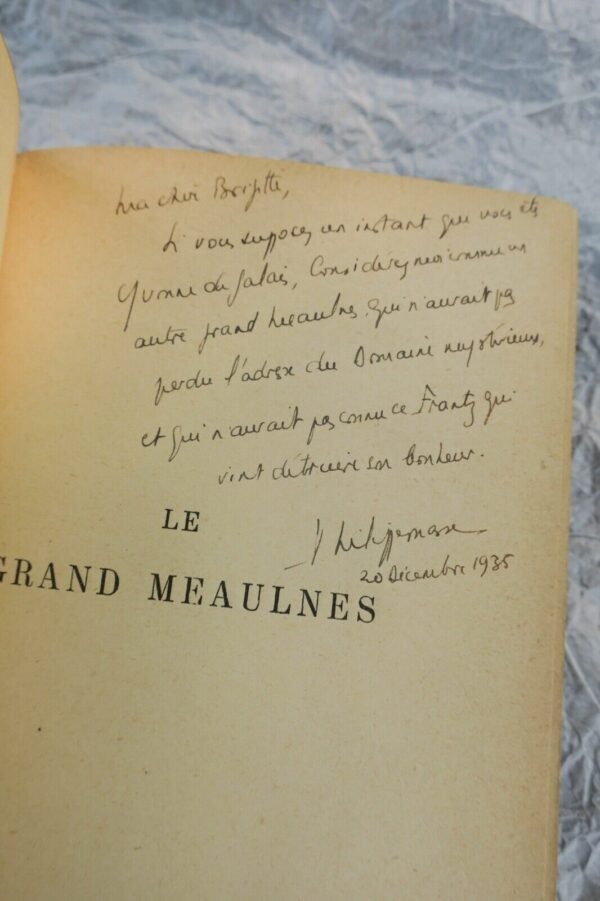 Ma chère Brigitte,
Si vous supposez un instant que vous êtes
Yvonne de Galais, Considérez moi comme un
autre grand Meaulnes, qui n'aurait pas
perdu l'adresse du Domaine mystérieux,
et qui n'aurait pas connu ce Frantz qui
vint détruire son bonheur.
20 Décembre 1935
LE
GRAND MEAULNES